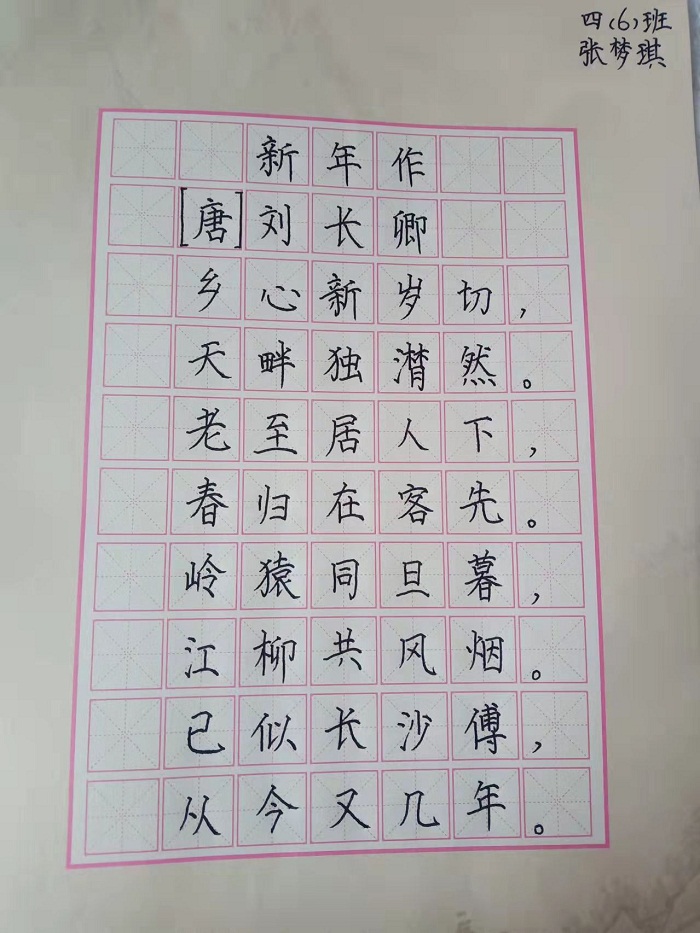 四(6)班
张梦琪
新年作
[唐]刘长卿
乡心新岁切，
天畔独潸然。
老至居人下，
春归在客先。
岭猿同旦暮，
江柳共风烟。
已似长沙傅，
从今又几年。